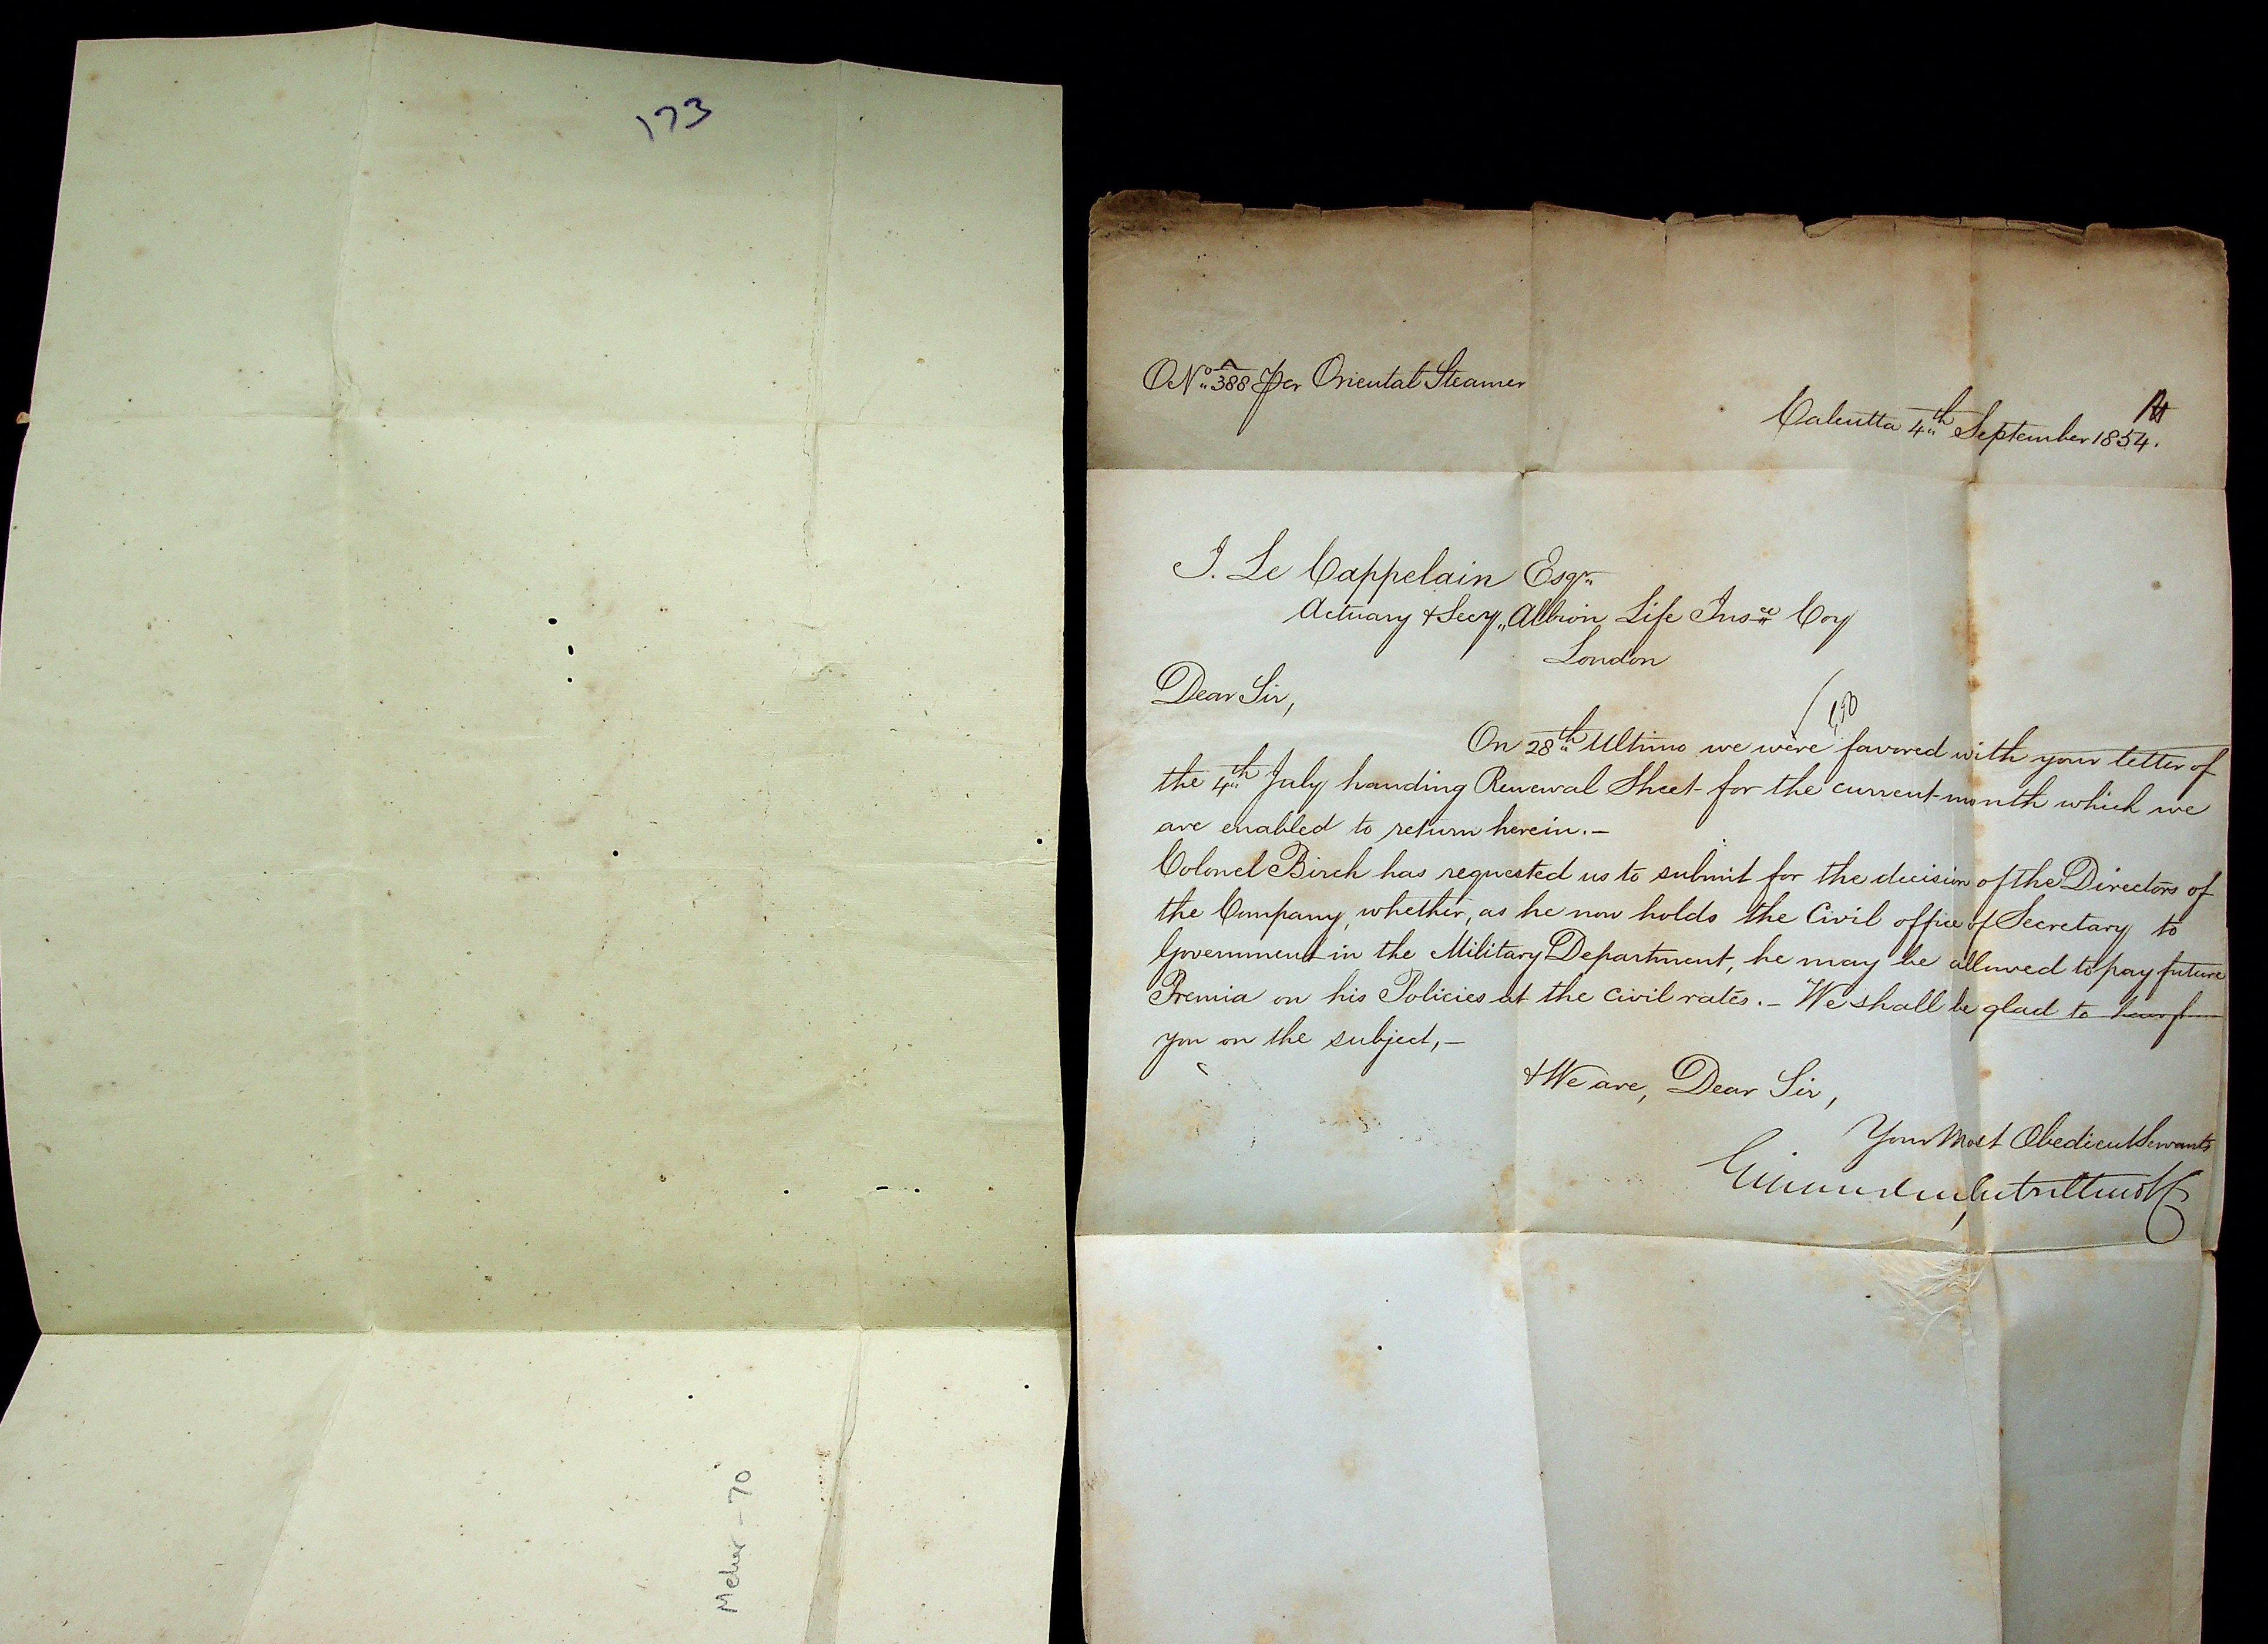 173
Mehar - 70
No 388 Per Oriental Steamer
Calcutta 4th September 1854.
J. Le Cappelain Esqr
Actuary & Secy, Albion Life Insce Coy
London
Dear Sir,
On 28th Ultimo we were favored with your letter of
the 4th July handing Renewal Sheet for the current month which we
are enabled to return herein. —
Colonel Birch has requested us to submit for the decision of the Directors of
the Company, whether, as he now holds the Civil office of Secretary to
Government in the Military Department, he may be allowed to pay future
Premia on his Policies at the civil rates. — We shall be glad to hear from
you on the subject, —
& We are, Dear Sir,
Your Most Obedient Servants